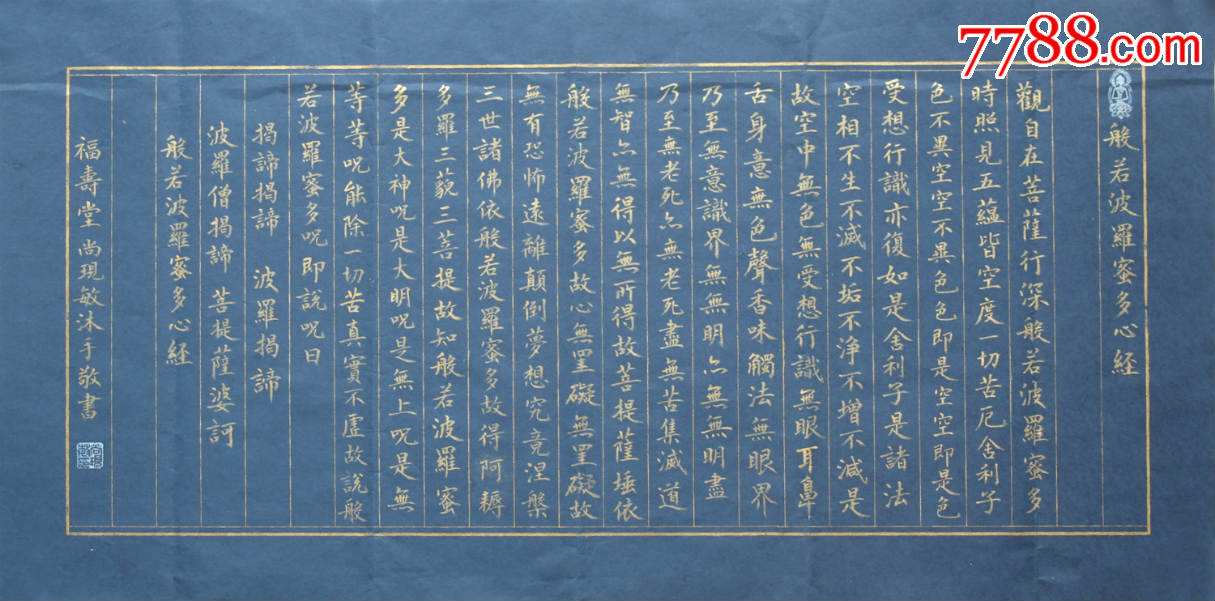 7788.com
般若波羅蜜多心経
觀自在菩薩行深般若波羅蜜多
時照見五蘊皆空度一切苦厄舍利子
色不異空空不異色色即是空空即是色
受想行識亦復如是舍利子是諸法
空相不生不滅不垢不淨不增不減是
故空中無色無受想行識無眼耳鼻
舌身意無色聲香味觸法無眼界
乃至無意識界無無明亦無無明盡
乃至無老死亦無老死盡無苦集滅道
無智亦無得以無所得故菩提薩埵依
般若波羅蜜多故心無罣礙無罣礙故
無有恐怖遠離顛倒夢想究竟涅槃
三世諸佛依般若波羅蜜多故得阿耨
多羅三藐三菩提故知般若波羅蜜
多是大神呪是大明呪是無上呪是無
等等呪能除一切苦真實不虛故說般
若波羅蜜多呪即說呪曰
揭諦揭諦 波羅揭諦
波羅僧揭諦 菩提薩婆訶
般若波羅蜜多心経
福壽堂尚現敏沐手敬書